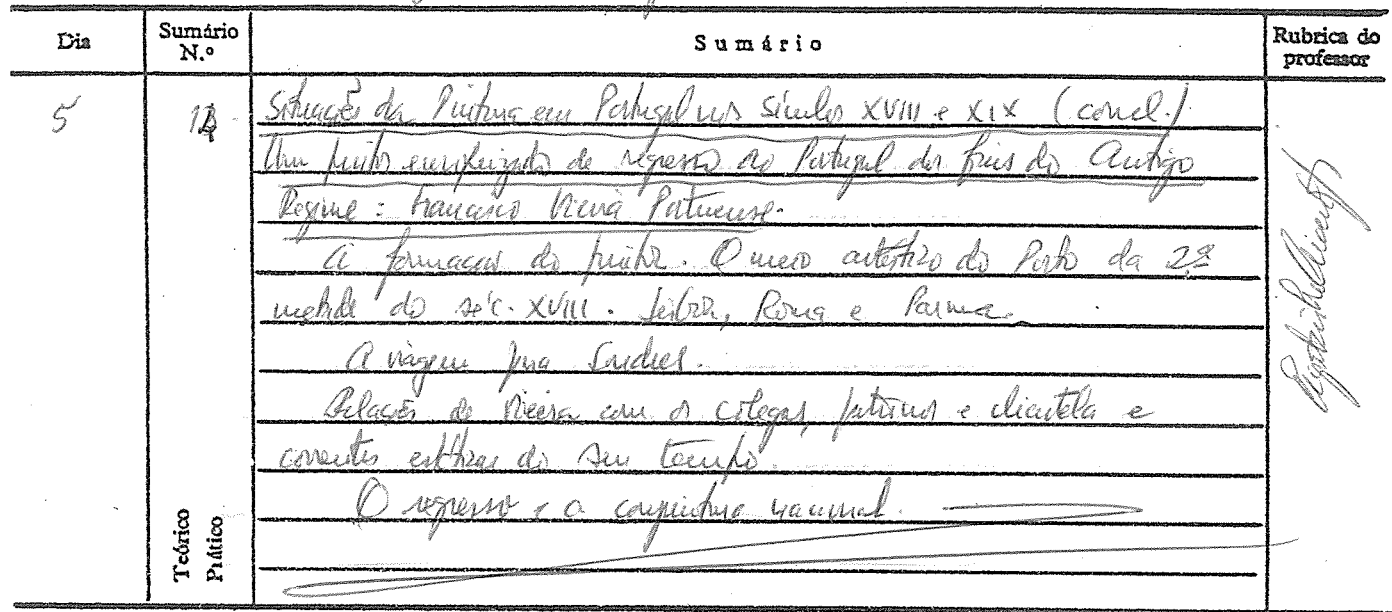 Dia
Sumário N.º
Sumário
Rubrica do professor
5
Situação da Pintura em Portugal nos séculos XVIII e XIX (concl.)
Um pintor europeizado de regresso ao Portugal dos fins do Antigo
Regime: Francisco Vieira Portuense.
A formação do pintor. O meio artístico do Porto da 2ª
metade do séc. XVIII. Lisboa, Roma e Parma.
A viagem para Londres.
Relações de Vieira com os colegas, patronos e clientela e
correntes estéticas do seu tempo.
O regresso e a conjuntura nacional.
Teórico
Prático